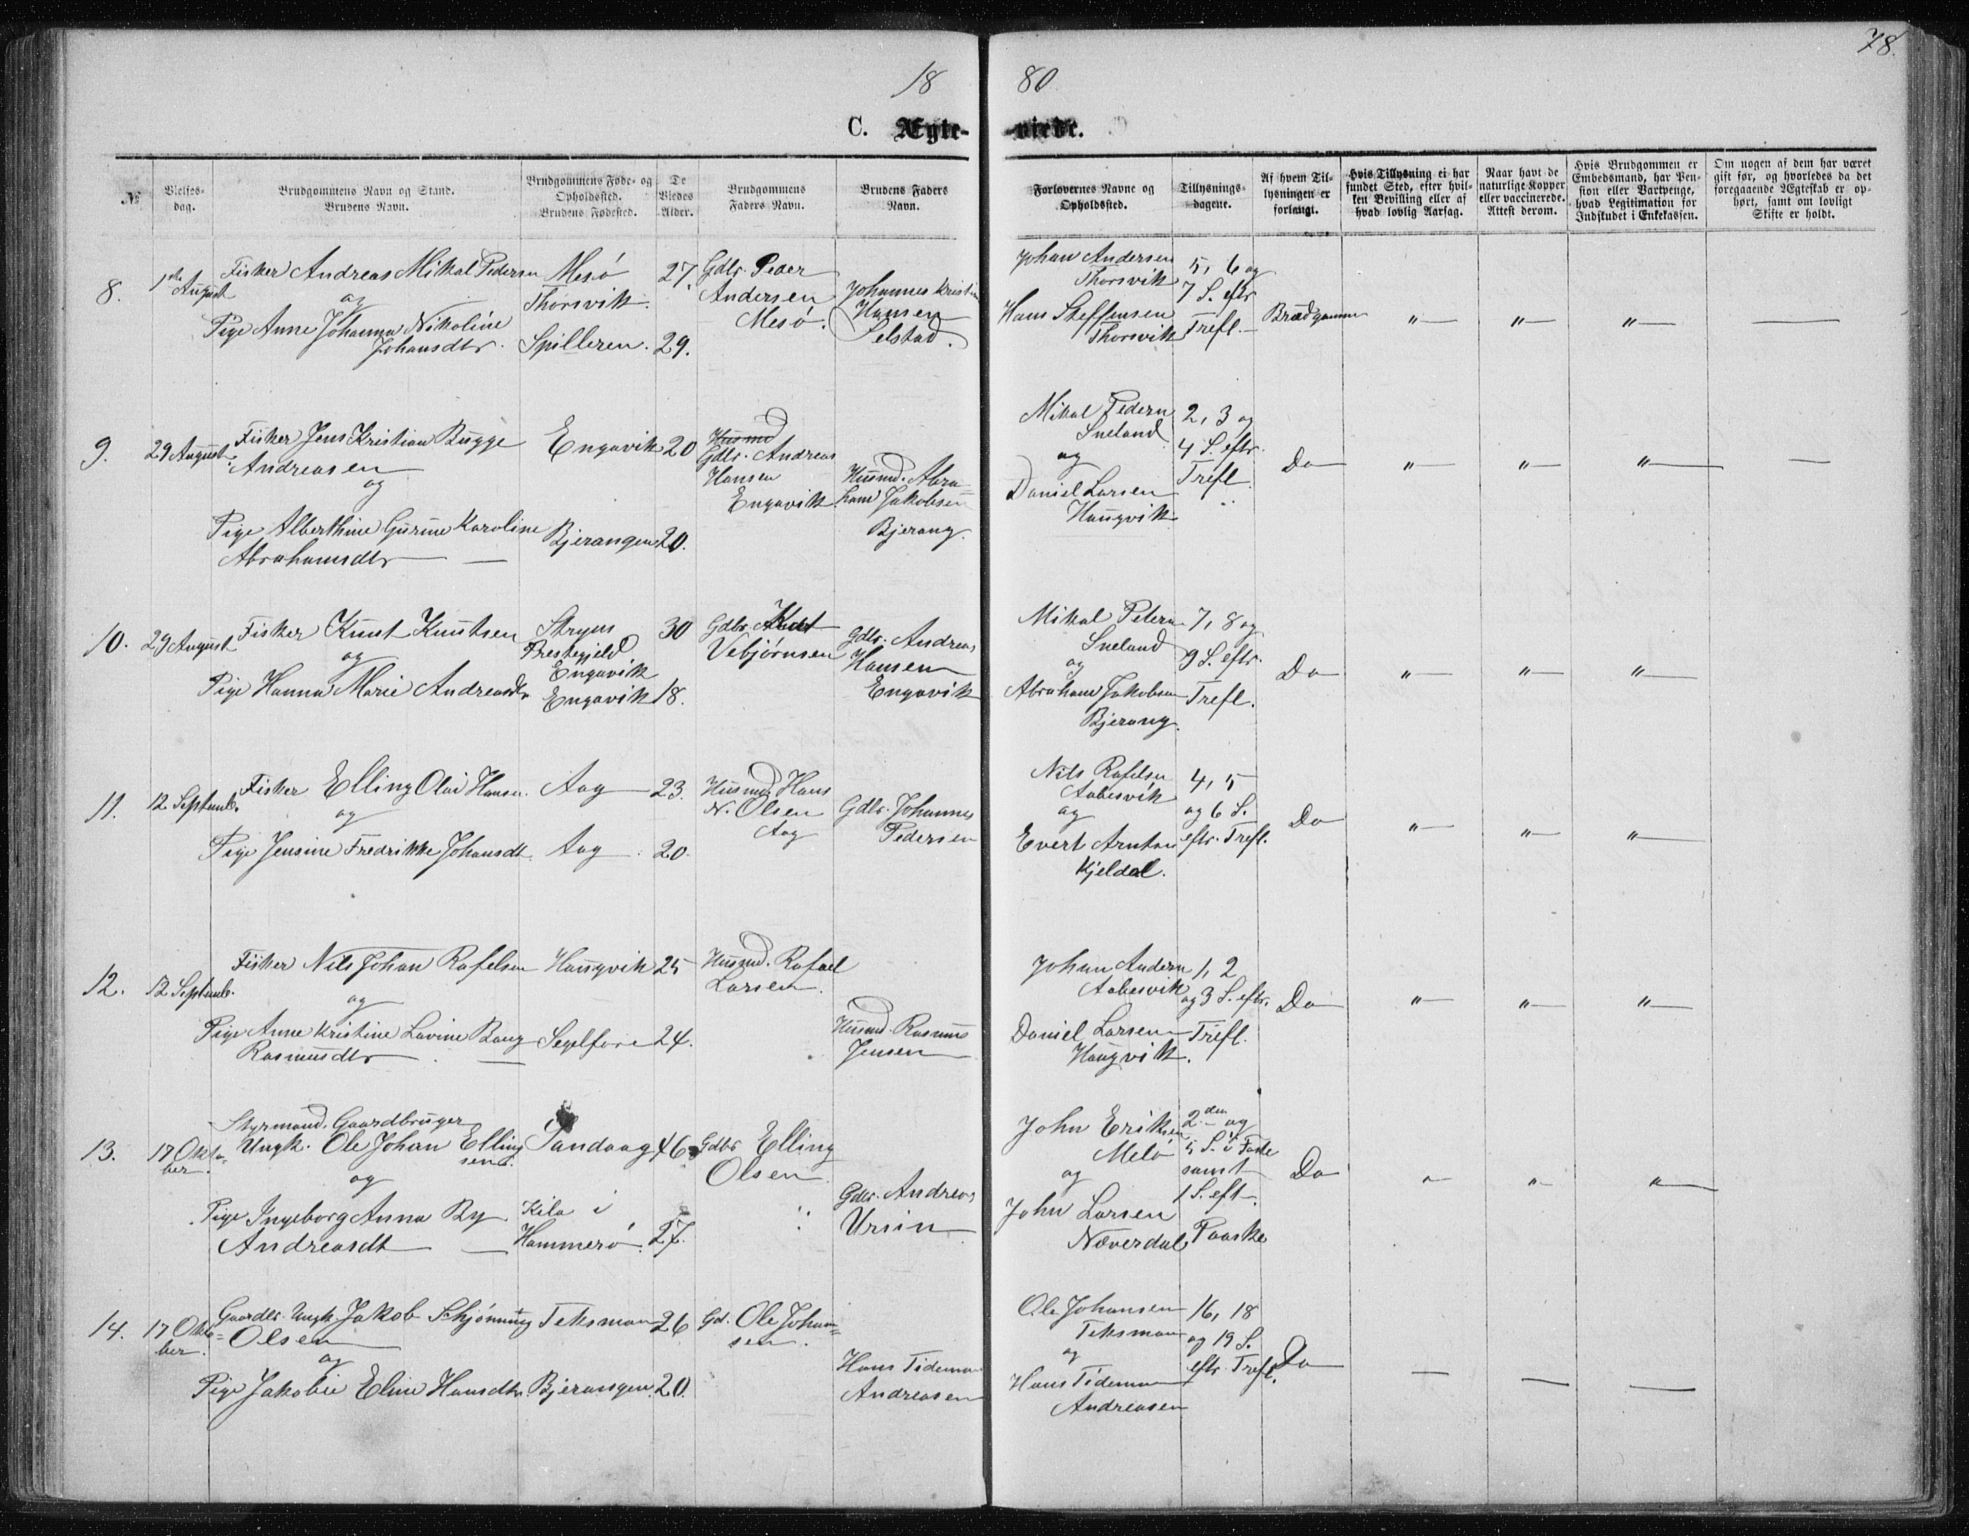 78.
18 80
C. Ægte- viede.
№
Vielses-
dag.
Brudgommens Navn og Stand.
Brudens Navn.
Brudgommens Føde- og
Opholdssted.
Brudens Fødested.
De
Viedes
Alder.
Brudgommens
Faders Navn.
Brudens Faders
Navn.
Forlovernes Navne og
Opholdssted.
Tillysnings-
dagene.
Af hvem Til-
lysningen er
forlangt.
Hvis Tillysning ei har
fundet Sted, efter hvil-
ken Bevilling eller af
hvad lovlig Aarsag.
Naar havt de
naturlige Kopper
eller vaccinerede.
Attest derom.
Hvis Brudgommen er
Embedsmand, har Pen-
sion eller Vartpenge,
hvad Legitimation for
Indskudet i Enkekassen.
Om nogen af dem har været
gift før, og hvorledes da det
foregaaende Ægteskab er op-
hørt, samt om lovligt
Skifte er holdt.
8.
1ste
August
Fisker Andreas Mikal Pedersen
og
Pige Anne Johanna Nikoline
Johansdtr.
Mesö
Thorsvik.
Spilleren.
27.
29.
Gdbr. Peder
Andersen
Mesö.
Johannes Kristian
Hansen
Selstad.
Johan Andersen
Thorsvik
Hans Steffensen
Thorsvik
5, 6 og
7 S. eftr
Trefl.
Brudgommen
"— "— "— —
9.
29 August
Fisker Jens Kristian Bugge
Andreasen
og
Pige Alberthine Gurine Karoline
Abrahamsdtr —
Engavik
Bjerangen
20
20.
Husmd
Gdbr. Andreas
Hansen
Engavik
Husmd. Abra-
ham Jakobsen
Bjerang.
Mikal Pedersn
Sneland
og
Daniel Larsen
Haugvik
2, 3 og
4 S. eftr.
Trefl.
Do
"— "— "— —
10.
29 August
Fisker Knut Knutsen
og
Pige Hanna Marie Andreasdtr
Stryns
Prestegjeld
Engavik
Engavik
30
18.
Gdbr. Knut
Vebjørnsen
Gdbr. Andreas
Hansen
Engavik
Mikal Petersn
Sneland
og
Abraham Jakobsen
Bjerang.
7, 8 og
9 S. eftr.
Trefl.
Do
"— "— "—
11.
12 Septemb.
Fisker Elling Olai Hansen.
og
Pige Jensine Fredrikke Johansdt.
Aag
Aag
23.
20.
Husmd Hans
N. Olsen
Aag
Gdbr. Johannes
Pedersen
Nils Rafelsen
Aabesvik
og
Evert Arntsen
Kjeldal.
4, 5
og 6 S.
eftr. Trefl.
Do
"— "— "—
12.
12 Septemb.
Fisker Nils Johan Rafelsen
og
Pige Anne Kristine Lavine Bang
Rasmusdtr —
Haugvik
Segelfore
25
24.
Husmd. Rafael
Larsen.
Husmd. Rasmus
Jensen
Johan Andersn
Aabesvik
Daniel Larsen
Haugvik.
1, 2
og 3 S. eftr.
Trefl.
Do
"— "— "—
13.
17 Okto-
ber.
Styrmand, Gaardbruger
Ungk. Ole Johan Elling
sen.
og
Pige Ingeborg Anna By
Andreasdt —
Sandaag
Kila i
Hammerö.
46
27.
Gdbr Elling
Olsen
Gdbr. Andreas
Ursin
John Eriksen
Melö
og
John Larsen
Næverdal
2den og
5 S. i Faste
samt
1 S. eft.
Paaske
Do
"— "— "—
14.
17 Okto-
ber.
Gaardbr. Ungk Jakob Schjønning
Olsen
og
Pige Jakobie Eline Hansdtr.
Teksmon
Bjerangen.
26
20.
Gd. Ole Johan-
sen.
Hans Tideman
Andreasen
Ole Johansen
Teksmon
og
Hans Tideman
Andreasen
16, 18
og 19 S.
eftr. Trefl.
Do
— — —